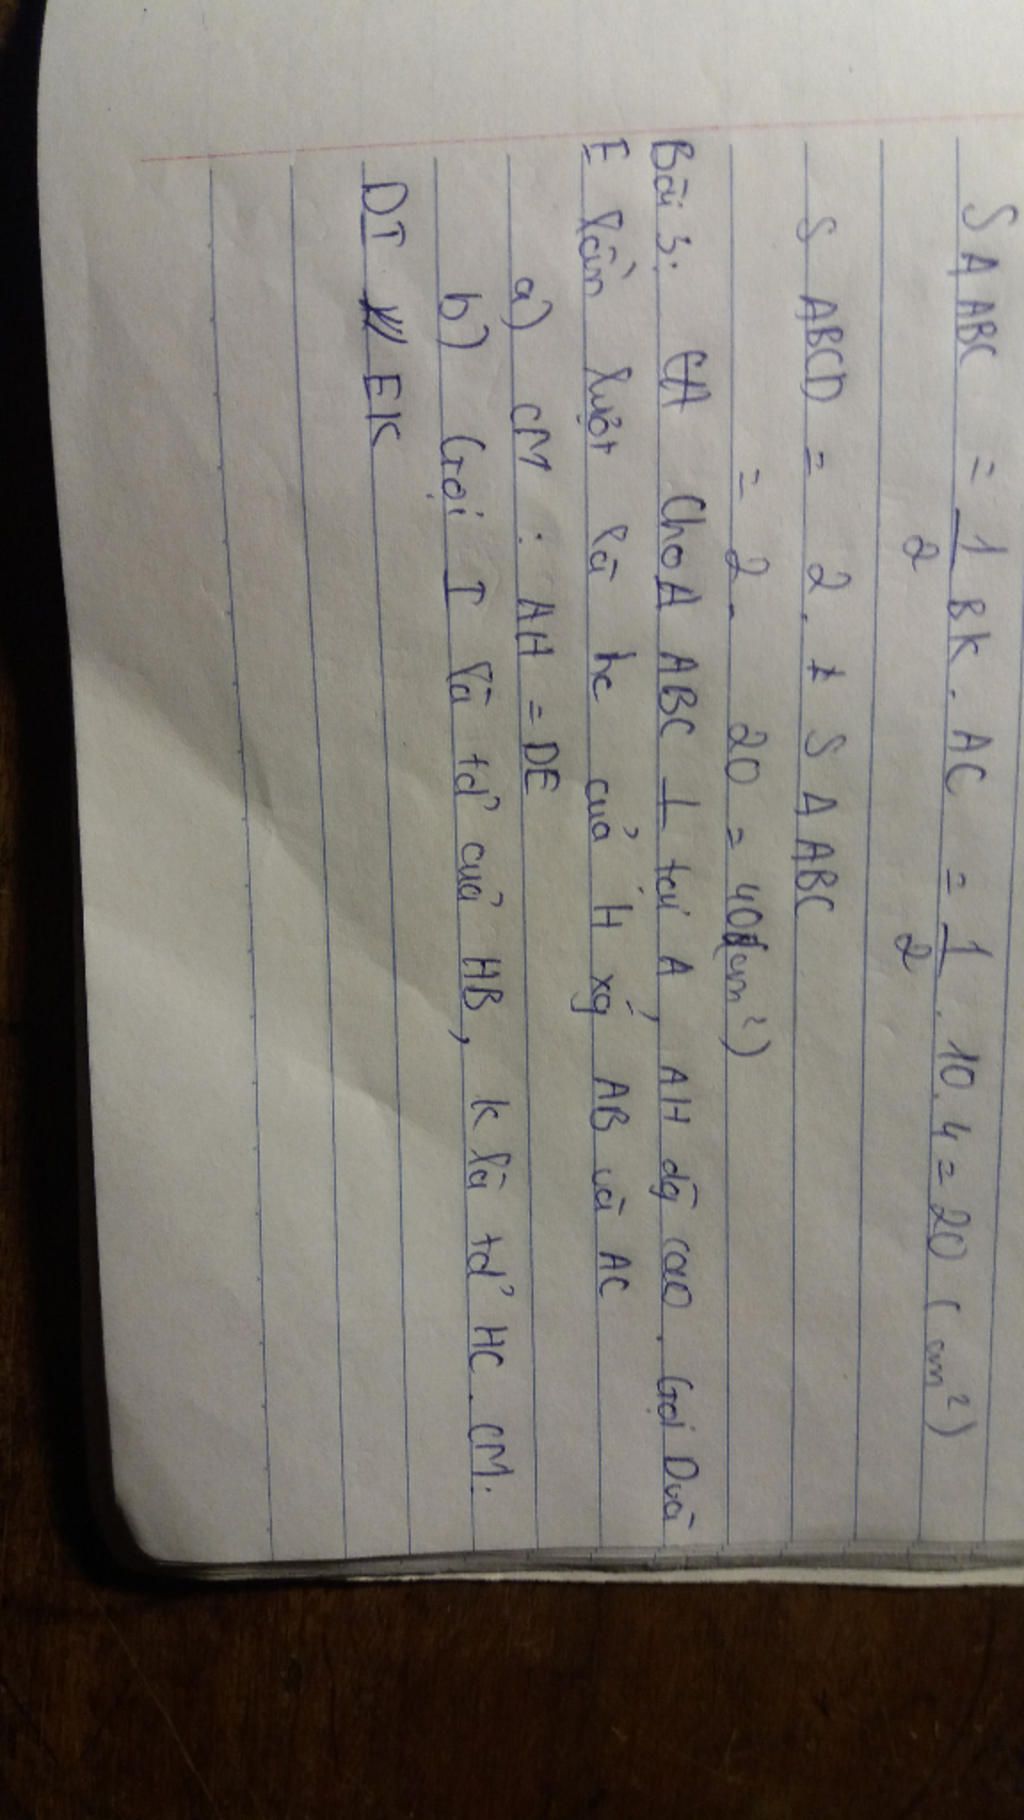 S Δ ABC = 1/2 BK. AC = 1/2 . 10.4 = 20 (cm²)
S ABCD = 2. S Δ ABC
= 2. 20 = 40 (cm²)
Bài 3. Cho Δ ABC ⊥ tại A, AH đg cao. Gọi D và
E lần lượt là hc của H xg AB và AC
a) CM : AH = DE
b) Gọi I là tđ' của HB, K là tđ' HC. CM:
DI // EK